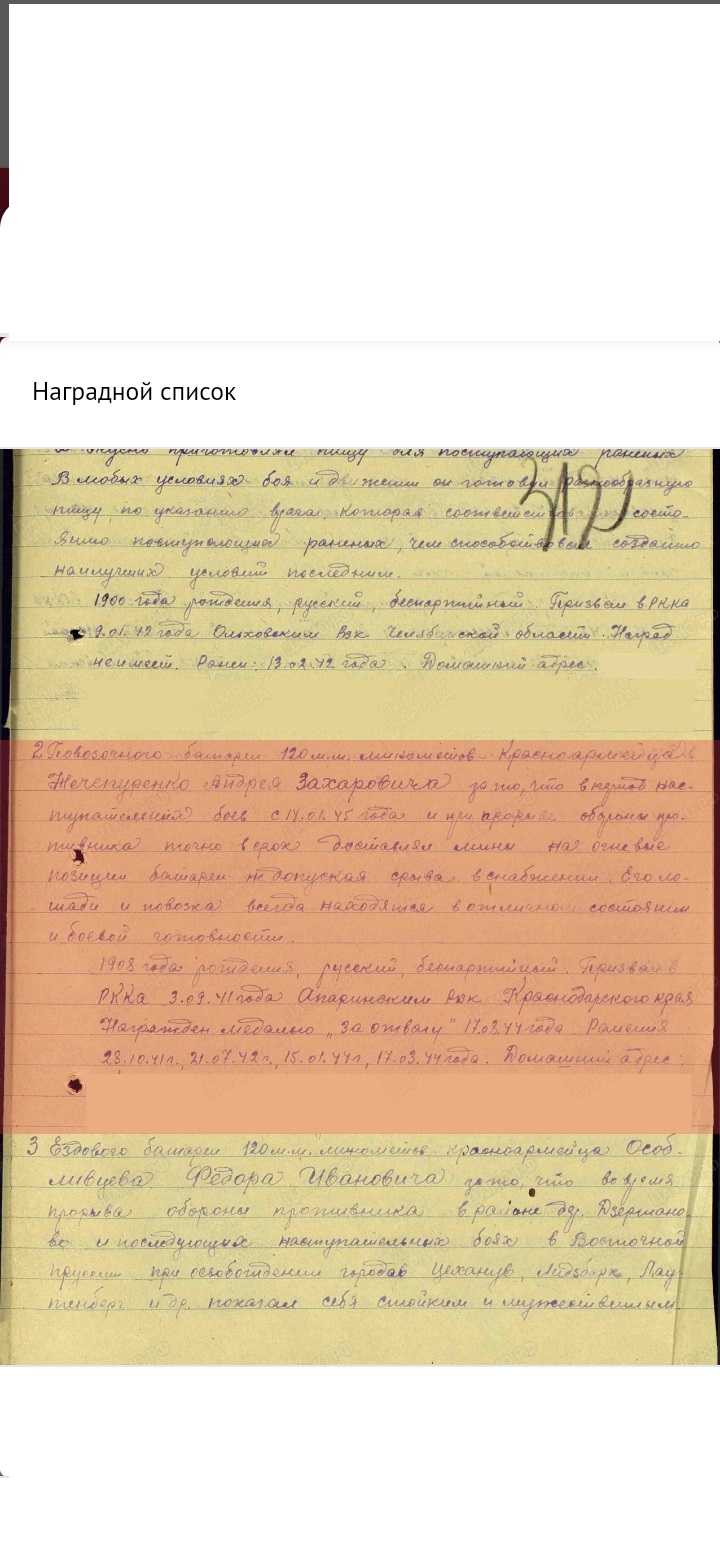 Наградной список
и вкусно приготовлял пищу для поступающих раненых
В любых условиях боя и движении он готовил разнообразную
пищу, по указанию врача, которая соответствовала состо-
янию поступающих раненых, чем способствовал созданию
наилучших условий последним.
312
1900 года рождения, русский, беспартийный. Призван в РККА
9.01.42 года Ольховским Рвк Челябинской области. Наград
не имеет. Ранен: 13.02.42 года. Домашний адрес:
2 Повозочного батареи 120 м.м. минометов - Красноармейца
Нечепуренко Андрея Захаровича за то, что в период нас-
тупательных боев с 14.01.45 года и при прорыве обороны про-
тивника точно в срок доставлял мины на огневые
позиции батареи не допуская срыва в снабжении. Его ло-
шади и повозка всегда находятся в отличном состоянии
и боевой готовности.
1908 года рождения, русский, беспартийный. Призван в
РККА 3.09.41 года Апаринским Рвк Краснодарского края
Награжден медалью „За отвагу" 17.03.44 года Ранения
23.10.41 г., 21.07.42 г., 15.01.44 г., 17.03.44 года. Домашний адрес:
3 Ездового батареи 120 м.м. минометов - красноармейца Особ-
ливцева Федора Ивановича за то, что во время
прорыва обороны противника в районе др. Дзержано-
во и последующих наступательных боях в Восточной
Пруссии при освобождении городов Цеханув, Лидзбарк, Лау-
тенберг и др. показал себя стойким и мужественным.